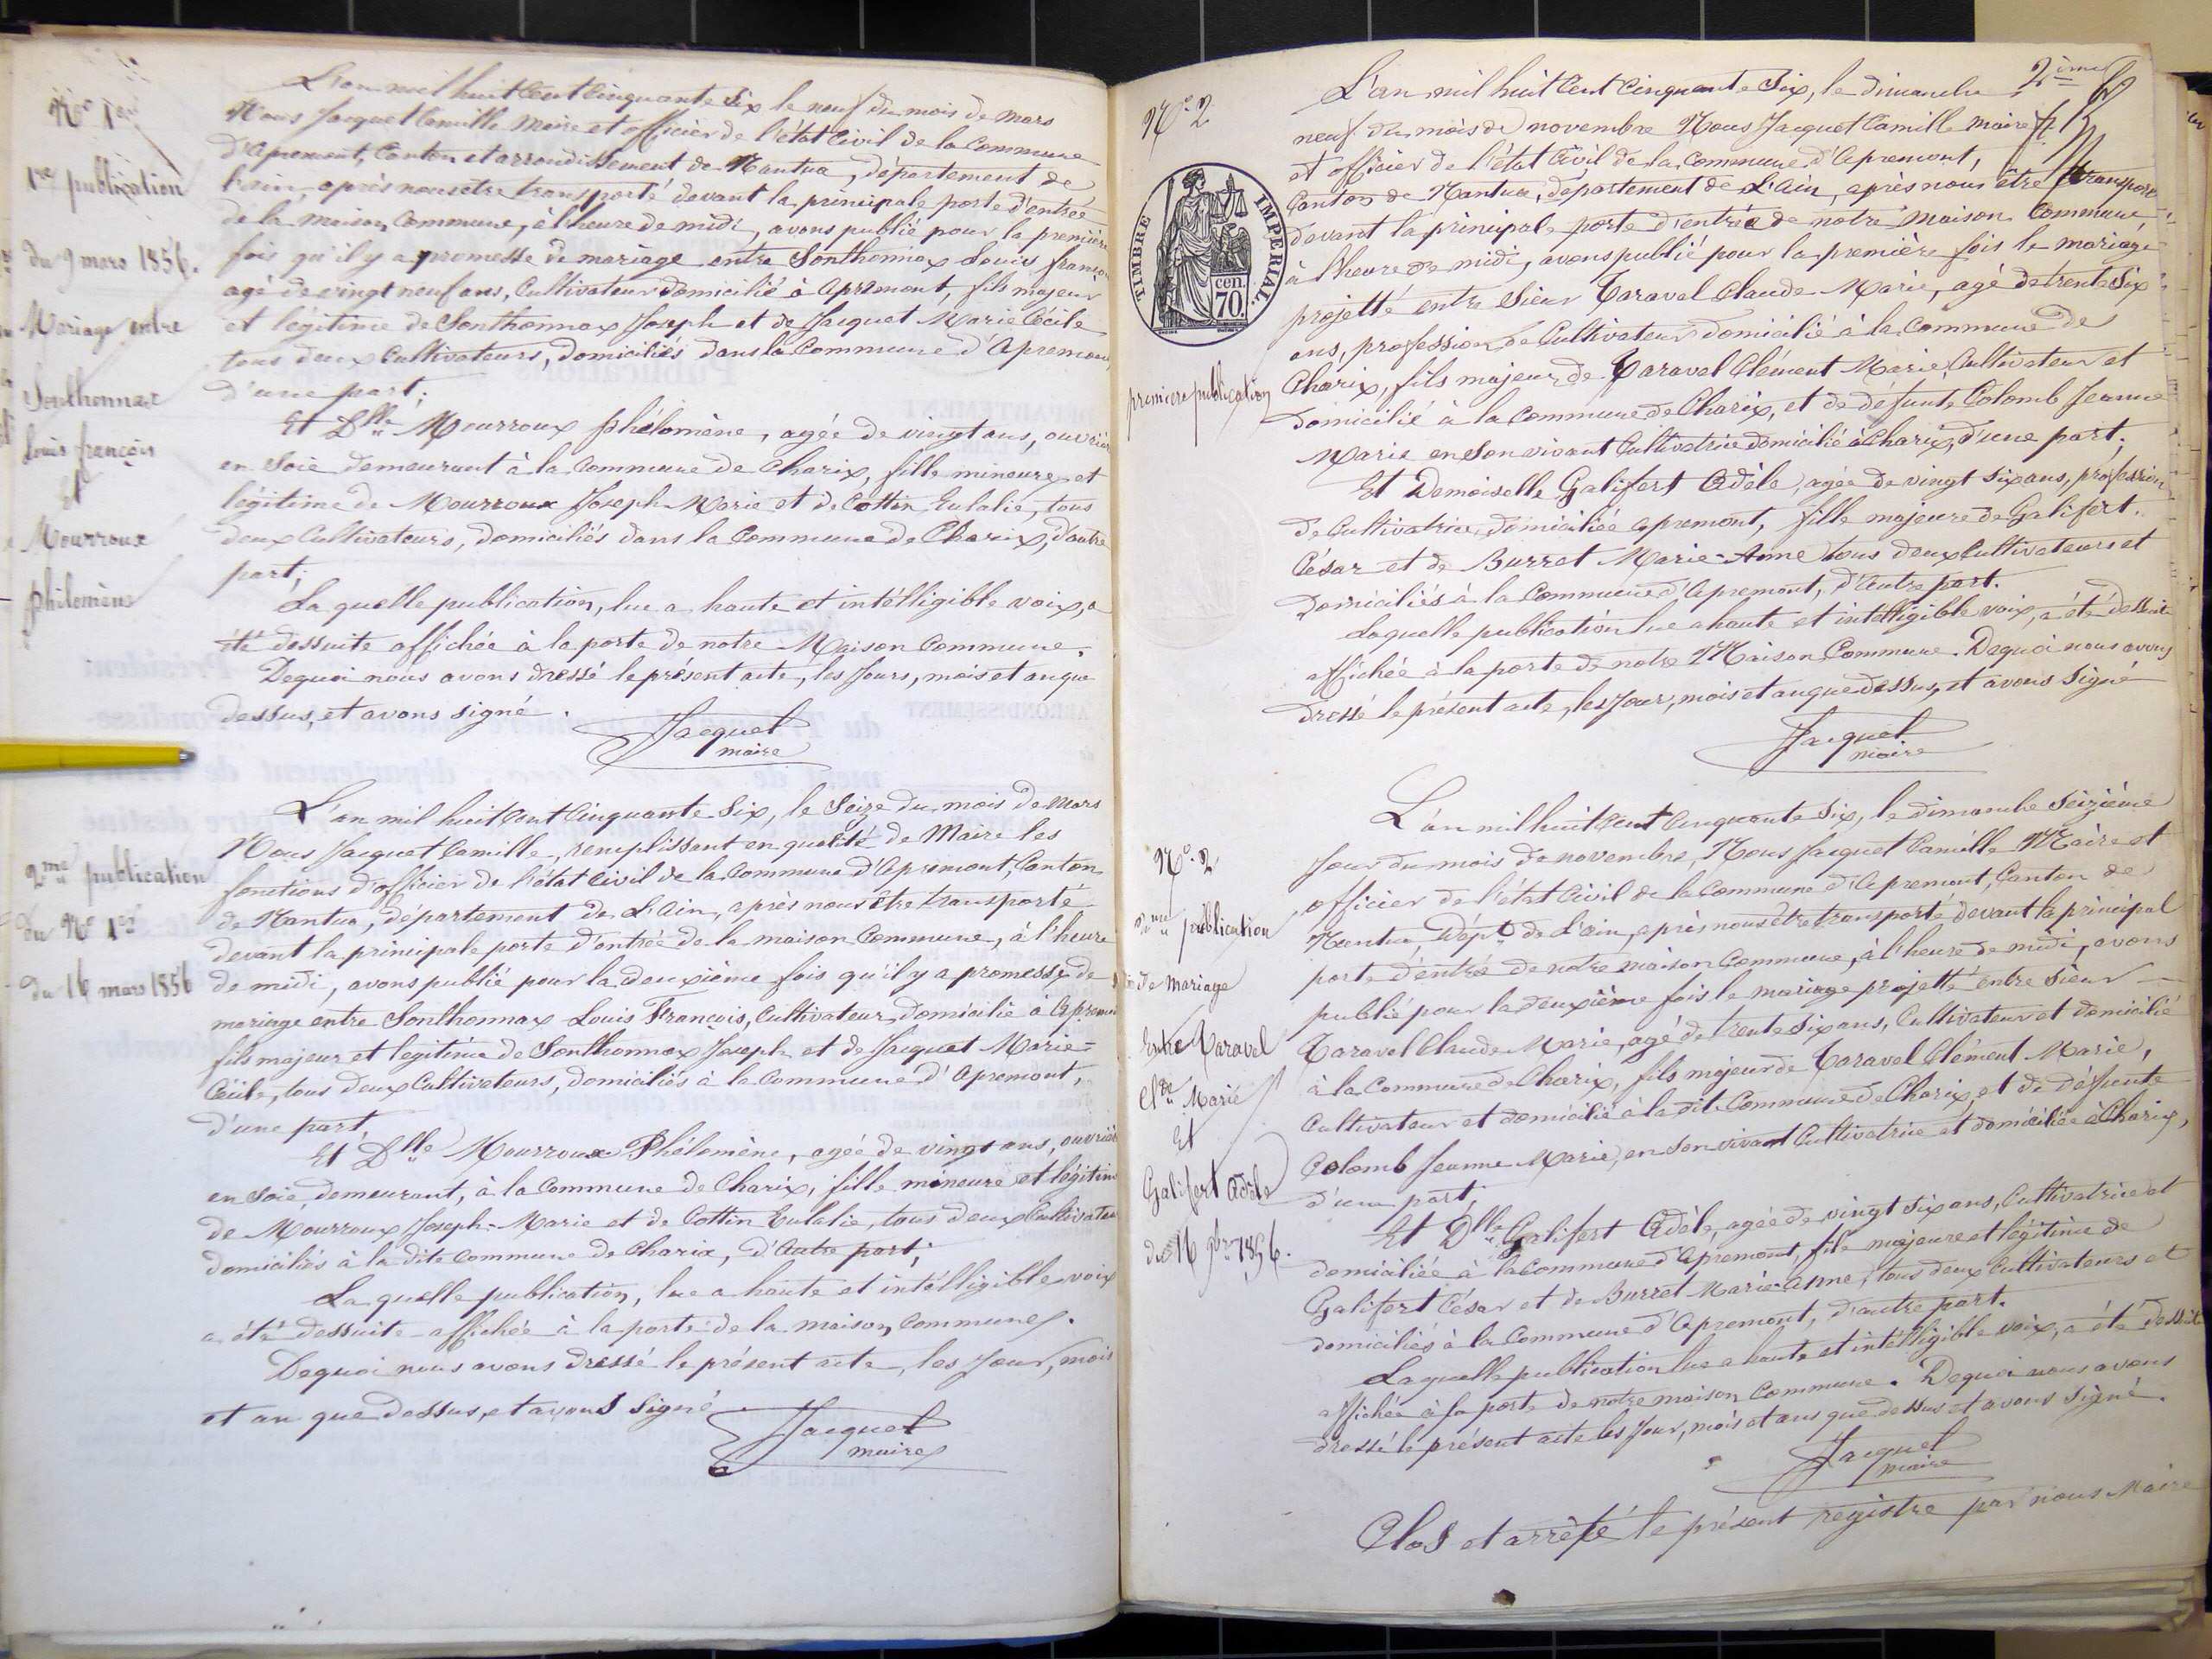 N° 1er
1re publication
du 9 mars 1856.
Mariage entre
Sonthonnax
Louis françois
Et
Mourroux
philomène
L'an mil huit Cent Cinquante Six le neuf du mois de mars
Nous Jacquet Camille Maire et officier de l'état Civil de la Commune
d'Apremont, Canton et arrondissement de Nantua, département de
l'ain, après nous etre transporté devant la principale porte d'entrée
de la maison Commune, à l'heure de midi, avons publié pour la première
fois qu'il y a promesse de mariage entre Sonthonnax Louis françois
agé de vingt neuf ans, Cultivateur domicilié à Apremont, fils majeur
et légitime de Sonthonnax Joseph et de Jacquet Marie Cécile
tous deux Cultivateurs, domiciliés dans la Commune d'Apremont
d'une part;
Et Dlle Mourroux phélomène, agée de vingt ans, ouvrière
en Soie demeurant à la Commune de Charix, fille mineure et
légitime de Mourroux Joseph Marie et de Cottin Eulalie, tous
deux Cultivateurs, domiciliés dans la Commune de Charix, d'autre
part;
La quelle publication, lue a haute et intélligible voix, a
été dessuite affichée à la porte de notre Maison Commune.
Dequoi nous avons dressé le présent acte, les Jours, mois et an que
dessus, et avons signé.
Jacquet
maire
2me publication
du N° 1er
du 16 mars 1856
L'an mil huit Cent Cinquante Six, le Seize du mois de Mars
Nous Jacquet Camille, remplissant en qualité de Maire les
fonctions d'officier de l'état Civil de la Commune d'Apremont, Canton
de Nantua, département de L'Ain, après nous etre transporté
devant la principale porte d'entrée de la maison Commune, à l'heure
de midi, avons publié pour la deuxième fois qu'il y a promesse de
mariage entre Sonthonnax Louis François, Cultivateur, domicilié à Apremont
fils majeur et legitime de Sonthonnax Joseph et de Jacquet Marie=
Cécile, tous deux Cultivateurs, domiciliés à la Commune d'Apremont,
d'une part.
Et Dlle Mourroux Phélomène, agée de vingt ans, ouvrière
en Soie, demeurant, à la Commune de Charix, fille mineure et légitime
de Mourroux Joseph-Marie et de Cottin Eulalie, tous deux Cultivateurs
domiciliés à la dite Commune de Charix, d'Autre part;
La quelle publication, lue a haute et intélligible voix
a été dessuite affichée à la porte de la maison Commune.
Dequoi nous avons dressé le présent acte, les Jour, mois
et an que dessus, et avons Signé.
Jacquet
maire
2ème
N° 2
TIMBRE IMPERIAL.
cen.
70.
première publication
L'an mil huit Cent Cinquante Six, le dimanche
neuf du mois de novembre Nous Jacquet Camille maire
et officier de l'état Civil de la Commune d'Apremont,
Canton de Nantua, département de L'Ain, après nous être transporté
devant la principale porte d'entrée de notre maison Commune,
à l'heure de midi, avons publié pour la première fois le mariage
projetté entre Sieur Caraval Claude Marie, agé de trente Six
ans, profession de Cultivateur domicilié à la Commune de
Charix, fils majeur de Caravel Clément Marie, Cultivateur et
domicilié à la Commune de Charix, et de défunte Colomb Jeanne
Marie en son vivant Cultivatrice domicilié à Charix, d'une part;
Et Demoiselle Galifert Adèle, agée de vingt Six ans, profession
de Cultivatrice, domiciliée apremont, fille majeure de Galifert
César et de Burret Marie-Anne tous deux Cultivateurs et
Domiciliés à la Commune d'Apremont, d'Autre part.
Laquelle publication lue a haute et intelligible voix, a été dessuite
affichée à la porte de notre Maison Commune. Dequoi nous avons
dressé le présent acte, les Jour, mois et an que dessus, et avons Signé
Jacquet
maire
N° 2
2me publication
de mariage
Entre Caravel
Cde Marie
Et
Galifert Adèle
du 16 9bre 1856.
L'an mil huit Cent Cinquante Six, le dimanche Seizième
Jour du mois de novembre, Nous Jacquet Camille Maire et
officier de l'état Civil de la Commune d'Apremont, Canton de
Nantua, Dépt de L'ain, après nous être transporté devant la principal
porte d'entrée de notre maison Commune, à l'heure de midi, avons
publié pour la deuxième fois le mariage projetté entre Sieur
Caravel Claude Marie, agé de trente Six ans, Cultivateur et domicilié
à la Commune de Charix, fils majeur de Caravel Clément Marie,
Cultivateur et domicilié à la dit Commune de Charix, et de défunte
Colomb Jeanne Marie, en Son vivant Cultivatrice et domiciliée à Charix,
d'une part;
Et Dlle Galifert Adèle, agée de vingt Six ans, Cultivatrice et
domiciliée à la Commune d'Apremont, file majeure et légitime de
Galifert César et de Burret Marie-Anne, tous deux Cultivateurs et
domiciliés à la Commune d'Apremont, d'autre part.
Laquelle publication lue a haute et intélligible voix, a été dessuite
affichée à la porte de notre maison Commune. Dequoi nous avons
dressé le présent acte les Jour, mois et ans que dessus et avons Signé.
Jacquet
maire
Clos et arrèté le présent registre par nous Maire